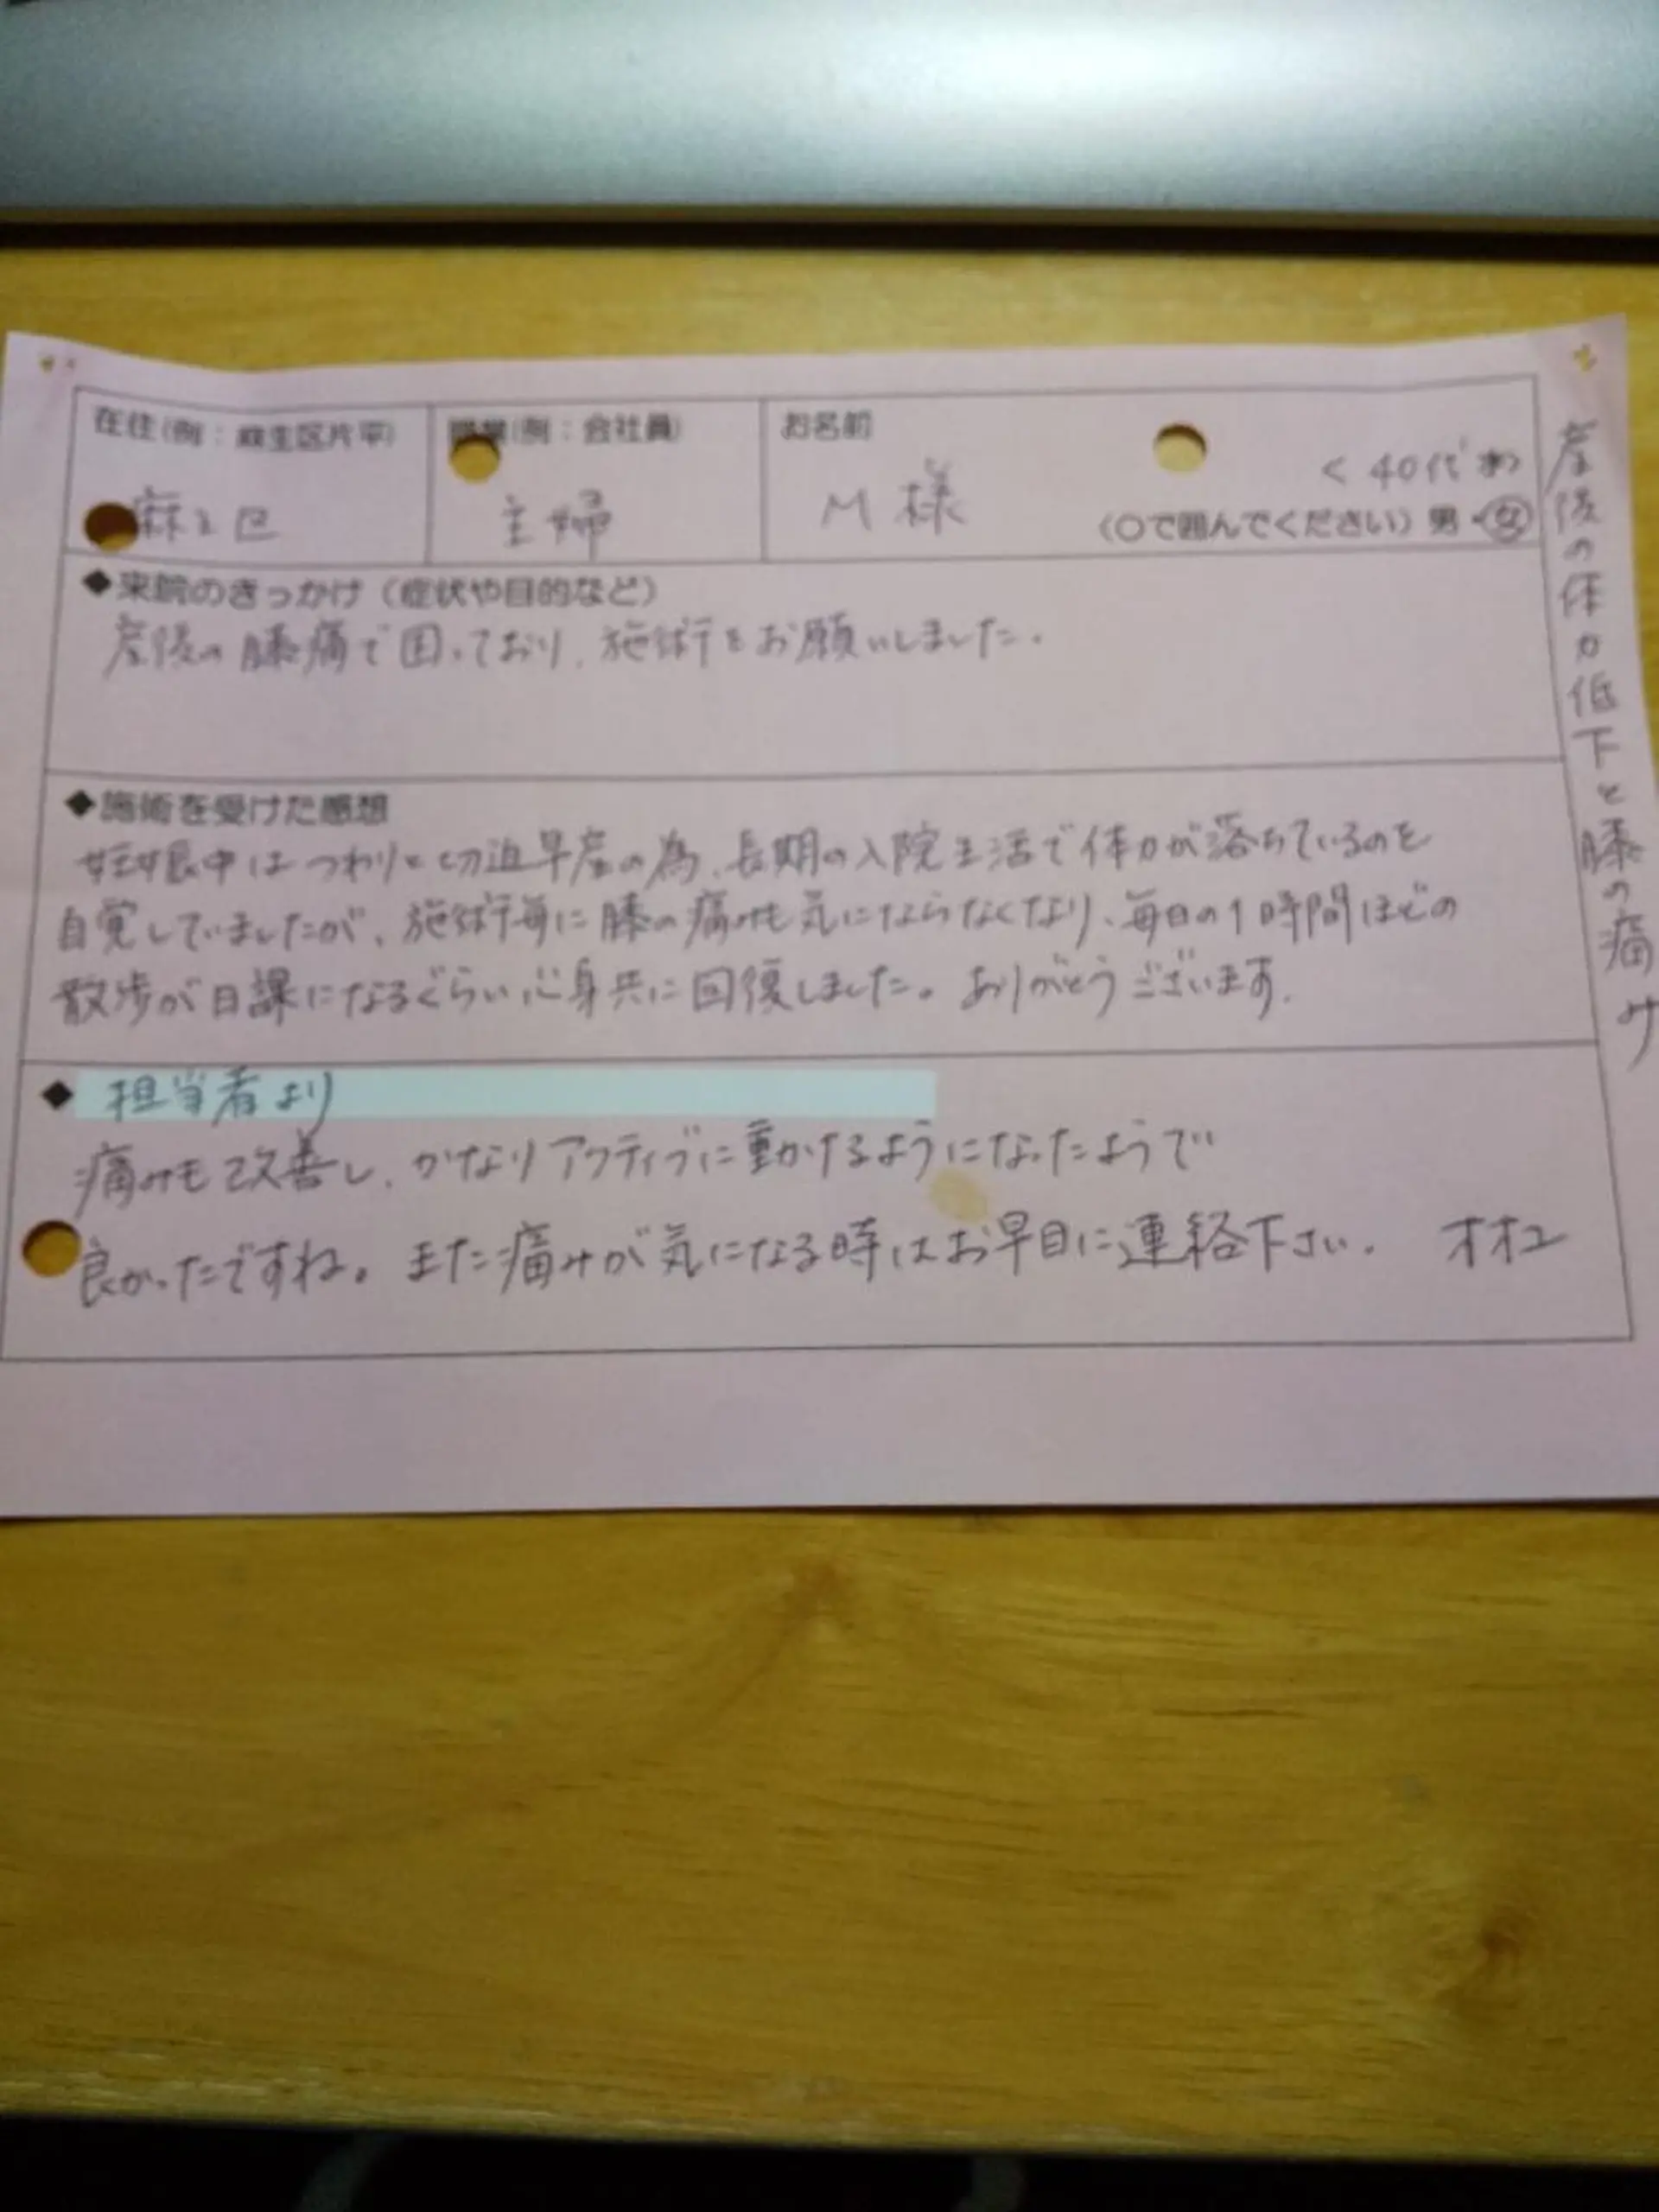 在住(例：麻生区片平)
職業(例：会社員)
お名前
麻生区
主婦
M 様
< 40代
(〇で囲んでください) 男・女
◆来院のきっかけ（症状や目的など）
産後の膝痛で困っており、施術をお願いしました。
◆施術を受けた感想
妊娠中はつわりと切迫早産の為、長期の入院生活で体力が落ちているのを
自覚していましたが、施術毎に膝の痛みも気にならなくなり、毎日の1時間ほどの
散歩が日課になるぐらい心身共に回復しました。ありがとうございます。
◆担当者より
痛みも改善し、かなりアクティブに動かけるようになったようで
良かったですね。また痛みが気になる時はお早目に連絡下さい。
産後の体力低下と膝の痛み